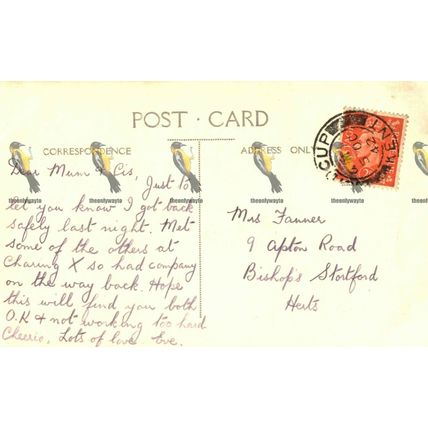 POST · CARD
CORRESPONDENCE
ADDRESS ONLY
Dear Mum & Cis, Just to
let you know I got back
safely last night. Met
some of the others at
Charing X so had company
on the way back. Hope
this will find you both
O.K & not working too hard
Cheerio, Lots of love Eve.
Mrs Fanner
9 Apton Road
Bishop's Stortford
Herts
CUP
KENT
theonlywayto
theonlywayto
theonlywayto
theonlywayto
theonlywayto